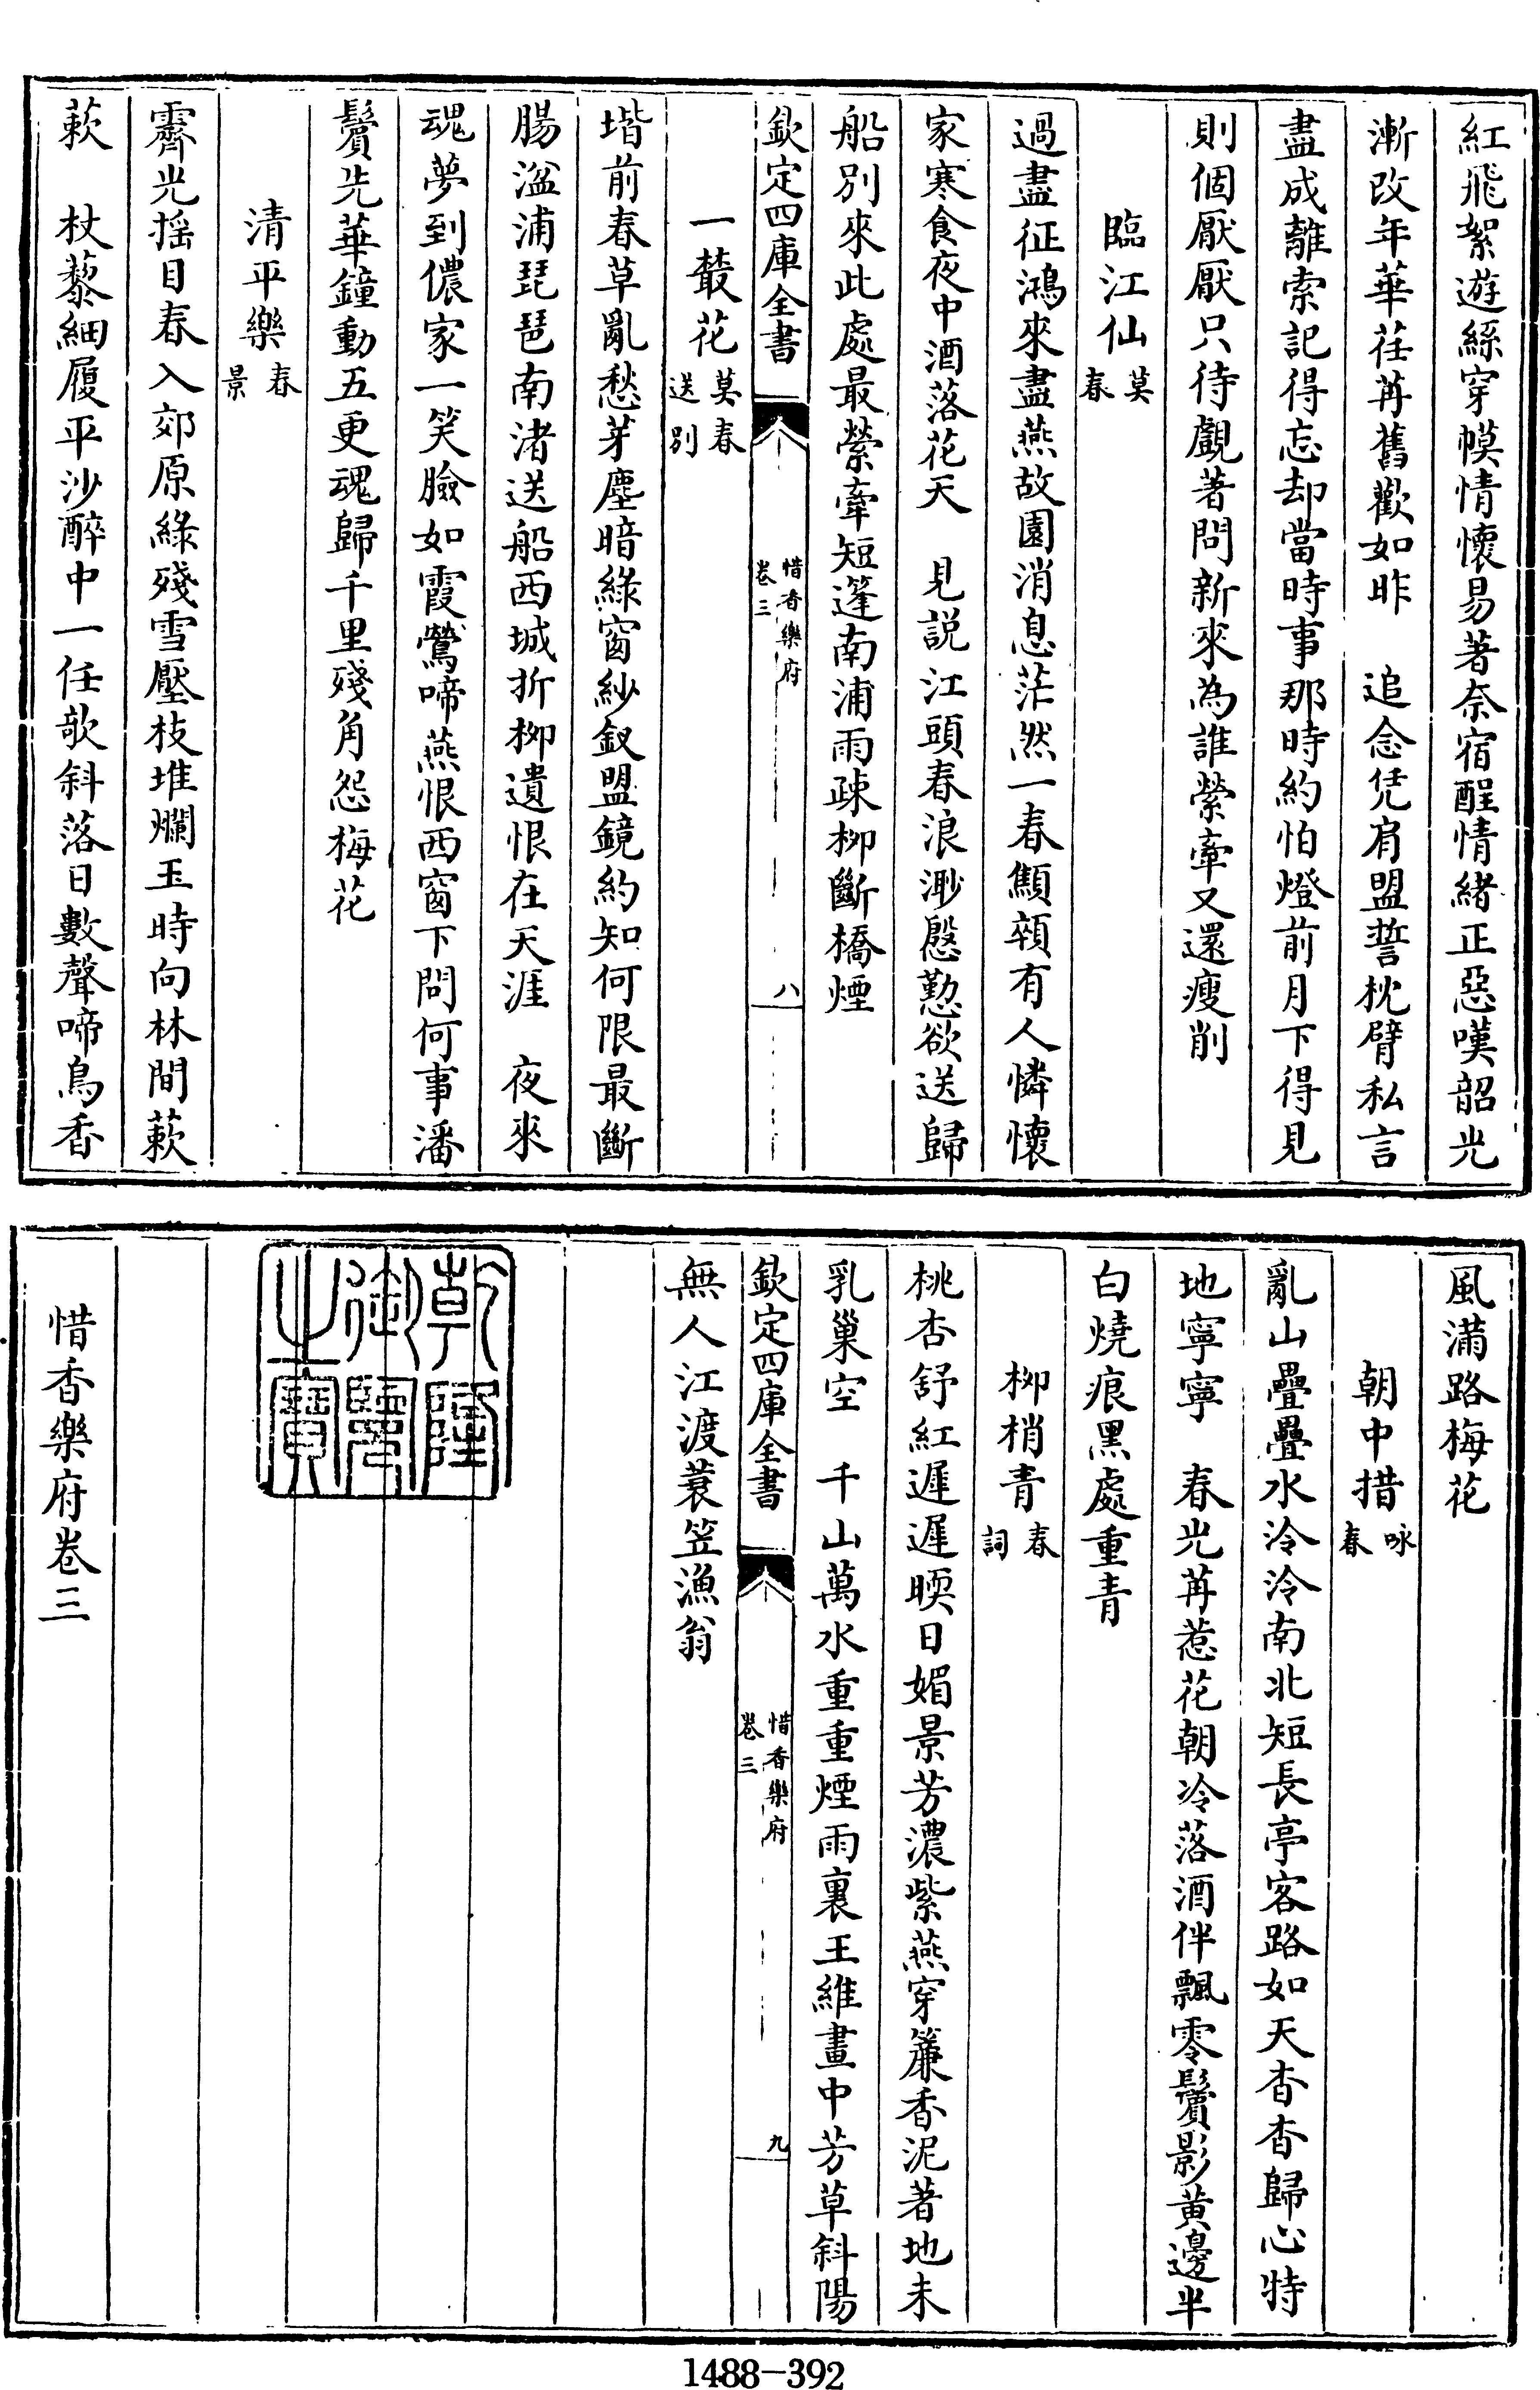 紅飛絮遊絲穿幙情懷易著奈宿酲情緒正惡嘆韶光
漸改年華荏苒舊歡如昨　追念凭肩盟誓枕臂私言
盡成離索記得忘却當時事那時約怕燈前月下得見
則個厭厭只待覷著問新來為誰縈牽又還瘦削
臨江仙莫春
過盡征鴻來盡燕故園消息茫然一春顦顇有人憐懷
家寒食夜中酒落花天　見説江頭春浪渺慇懃欲送歸
船别來此處最縈牽短篷南浦雨疎柳斷橋煙
欽定四庫全書
惜香樂府
卷三
八
一叢花莫春送别
堦前春草亂愁芽塵暗綠窗紗釵盟鏡約知何限最斷
腸湓浦琵琶南渚送船西城折柳遺恨在天涯　夜來
魂夢到儂家一笑臉如霞鶯啼燕恨西窗下問何事潘
鬢先華鐘動五更魂歸千里殘角怨梅花
清平樂春景
霽光揺目春入郊原綠殘雪壓枝堆爛玉時向林間蔌
蔌　杖藜細履平沙醉中一任欹斜落日數聲啼鳥香
風滿路梅花
朝中措咏春
亂山疊疊水泠泠南北短長亭客路如天杳杳歸心特
地寧寧　春光苒惹花朝冷落酒伴飄零鬢影黃邊半
白燒痕黑處重青
柳梢青春詞
桃杏舒紅遲遲暝日媚景芳濃紫燕穿簾香泥著地未
乳巢空　千山萬水重重煙雨裏王維畫中芳草斜陽
欽定四庫全書
惜香樂府
卷三
九
無人江渡蓑笠漁翁
乾隆
御覽
之寶
惜香樂府卷三
1488-392